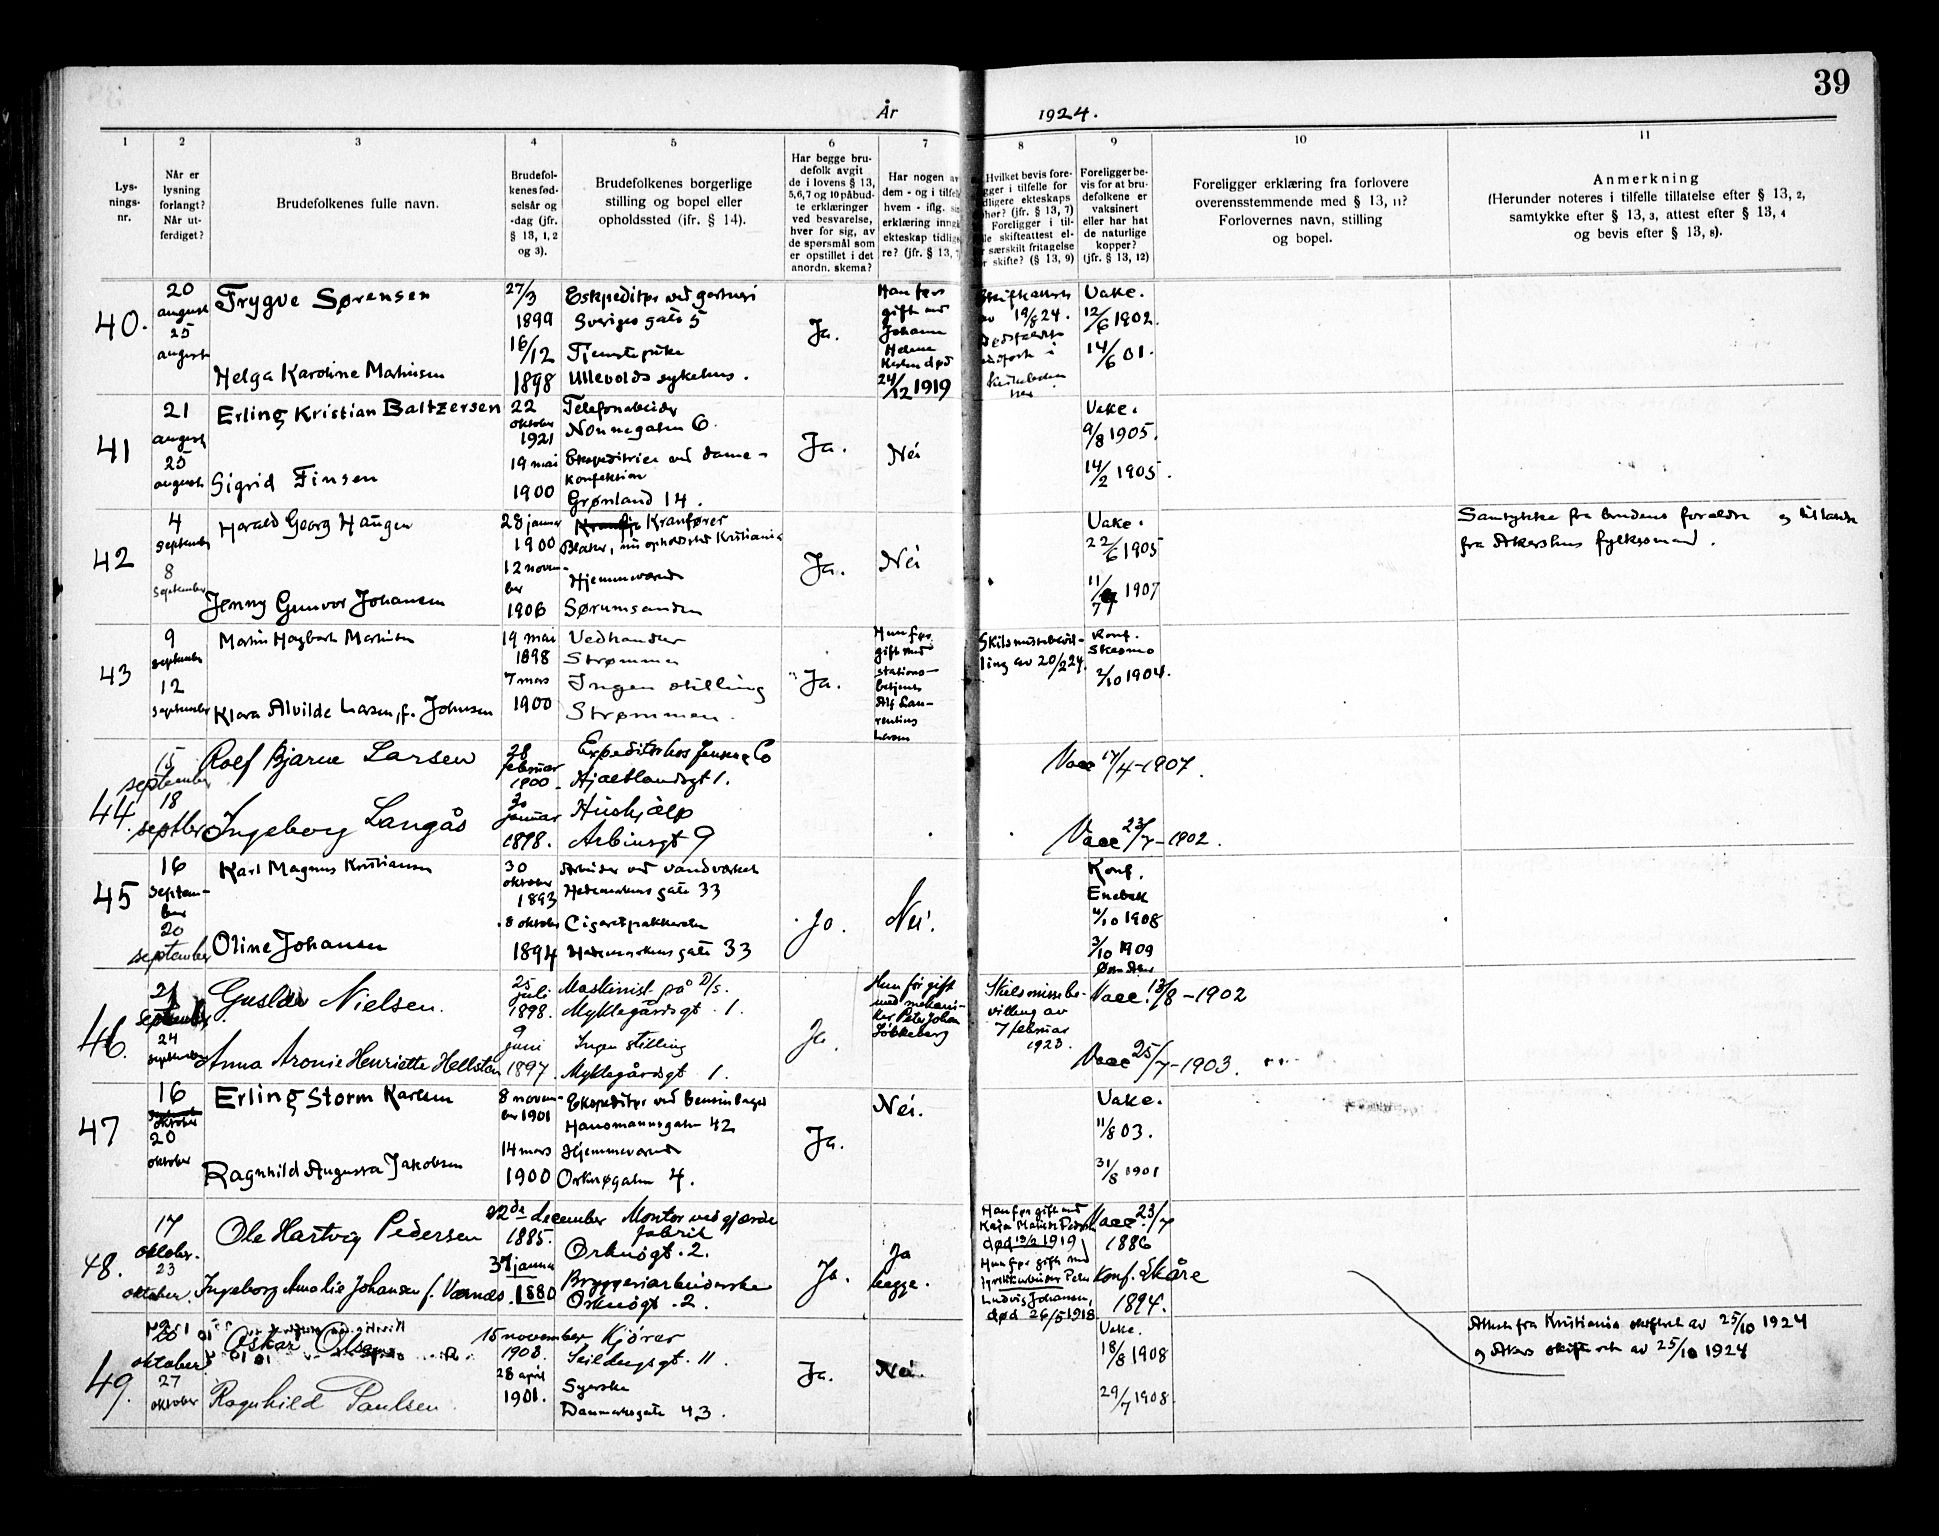 39
År 1924.
1 2 3 4 5 6 7 8 9 10 11
Lys-
nings-
nr.
Når er
lysning
forlangt?
Når ut-
ferdiget?
Brudefolkenes fulle navn.
Brudefol-
kenes fød-
selsår og
-dag (jfr.
§ 13, 1, 2
og 3).
Brudefolkenes borgerlige
stilling og bopel eller
opholdssted (ifr. § 14).
Har begge bru-
defolk avgit
de i lovens § 13,
5,6,7 og 10 påbud-
te erklæringer
ved besvarelse,
hver for sig, av
de spørsmål som
er opstillet i det
anordn. skema?
Har nogen av
dem - og i tilfel
hvem - iflg. si
erklæring inng
ekteskap tidlige
re? (jfr. § 13,
Hvilket bevis fore-
gger i tilfelle for
dligere ekteskaps
hør? (jfr. § 13, 7)
Foreligger i til-
lle skifteattest el-
r særskilt fritagelse
r skifte? (§ 13, 9)
Foreligger be-
vis for at bru-
defolkene er
vaksinert
eller har hat
de naturlige
kopper?
(jfr. § 13, 12)
Foreligger erklæring fra forlovere
overensstemmende med § 13, 11?
Forlovernes navn, stilling
og bopel.
Anmerkning
(Herunder noteres i tilfelle tillatelse efter § 13, 2,
samtykke efter § 13, 3, attest efter § 13, 4
og bevis efter § 13, 8).
40.
20
august
25
august
Trygve Sørensen
Helga Karoline Mathisen
27/3
1899
16/12
1898
Ekspeditør ved gartneri
Sveriges gate 5
Tjenestepike
Ullevolds sykehus.
Ja.
Han før
gift med
Johanne
Helene
død
24/12 1919
Skifteattest
av 19/8 24.
i
her
Vake.
12/6 1902.
14/6 01.
41
21
august
25
august
Erling Kristian Baltzersen
Sigrid Finsen
22
oktober
1921
19 mai
1900
Telefonarbeider
Nonnegaten 6.
Ekspeditrice ved dame-
konfeksion
Grønland 14.
Ja.
Nei
Vake.
9/8 1905.
14/2 1905.
42
4
september
8
september
Harald Georg Haugen
Jenny Gunvor Johansen
28 januar
1900
12 novem-
ber
1906
Kranfører
Blaker, nu opholdssted Kristiania
Hjemmeværende
Sørumsanden
Ja.
Nei
Vake.
22/6 1905
11/7 1907
Samtykke fra brudens foreldre og tillatelse
fra Akershus fylkesmand.
43
9
september
12
september
Martin Hagbart Mathisen
Klara Alvilde Larsen, f. Johnsen
19 mai
1898
7 mars
1900
Vedhandler
Strømmen
Ingen stilling
Strømmen.
Ja.
Hun før
gift med
stations-
betjent
Alf Lau-
rentius
Larsen
Skilsmissebevil-
ling av 20/2 24.
Konf.
Skedsmo
2/10 1904.
44.
15
september
18
septber
Rolf Bjarne Larsen
Ingeborg Langås
28
februar
1900
30
januar
1898.
Expeditør hos Jensen & Co
Hjaltlandsgt 1.
Hushjælp
Arbinsgt 9
Vacc 17/4-1907.
Vacc 23/7-1902.
45
16
septem-
ber
20
september
Karl Magnus Kristiansen
Oline Johansen
30
oktober
1893
8 oktober
1894
Arbeider ved vandverket
Hedemarkens gate 33
Cigaretpakkerske
Hedemarkens gate 33
Ja.
Nei.
Konf.
Enebak
4/10 1908
3/10 1909
46.
21
september
24
september
Gustav Nielsen.
Anna Aronie Henriette Hellsten
25
juli
1898.
9
juni
1897.
Maskinist på D/s.
Myklegårdsgt. 1.
Ingen stilling
Myklegårdsgt 1.
Ja.
Hun før gift
med mekani-
ker Peter Johan
Lökkeberg
Skilsmissebe-
villing av
7 februar
1923.
Vacc. 13/8-1902
Vacc 25/7-1903.
47
16
oktober
20
oktober
Erling Storm Karlsen
Ragnhild Augusta Jakobsen
8 novem-
ber 1901
14 mars
1900
Ekspeditør ved bensinlager
Hausmannsgaten 42
Hjemmeværende
Orknøgaten 4.
Ja.
Nei.
Vake.
11/8 03.
31/8 1901
48.
17
oktober.
23
oktober.
Ole Hartvig Pedersen
Ingeborg Amalie Johansen f. Værnes.
22de december
1885.
31 januar
1880
Montør ved gjærde
fabrik
Orknøgt. 2.
Bryggeriarbeiderske
Orknøgt. 2.
Ja.
Ja
begge.
Han før gift med
død 19/2 1919
Hun før gift med
Peter
Ludvig Johansen,
død 26/5 1918
Vacc. 23/7
1886
Konf. Skåre
1894.
49.
oktober
27
oktober
Oskar Olsen
Ragnhild Paulsen
15 november
1903.
28 april
1901.
Kjører
Seildugsgt. 11.
Syerske
Danmarksgate 43.
Ja.
Nei.
Vake.
18/8 1908
29/7 1908.
Attest fra Kristiania skifteret av 25/10 1924
og Akers skifteret av 25/10 1924